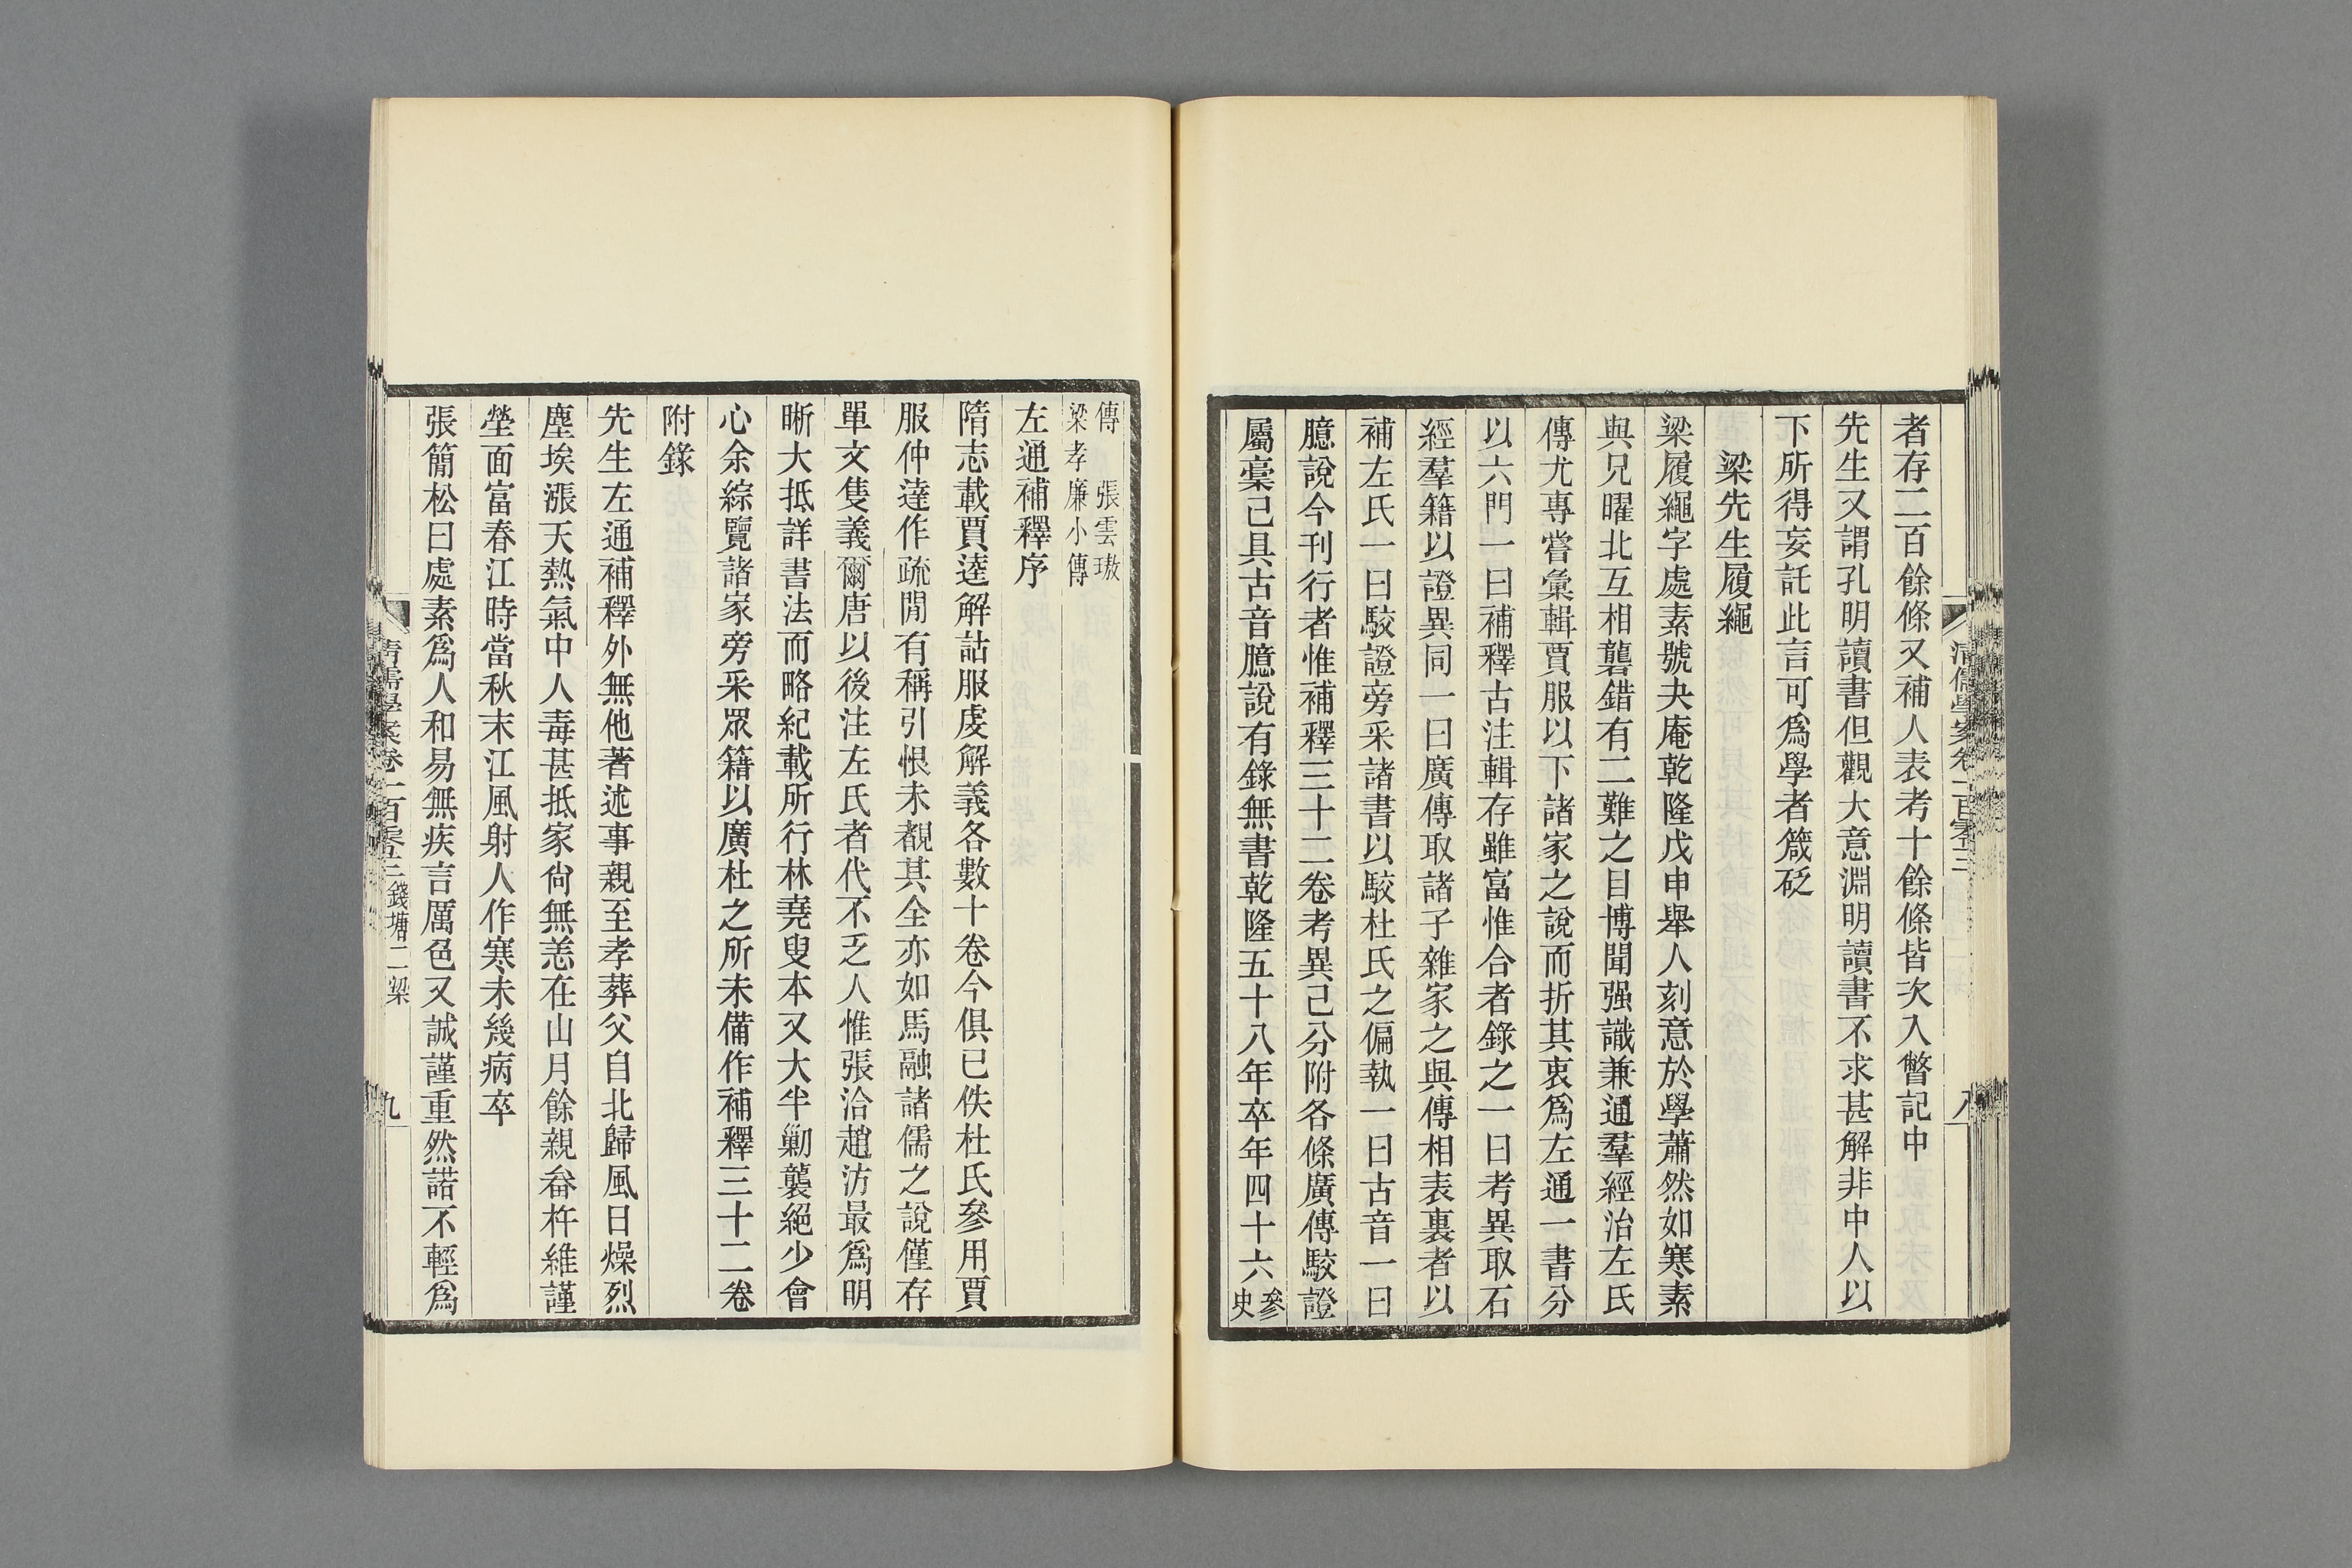 清儒學案卷二百零三
八
者存二百餘條又補人表考十餘條皆次入瞥記中
先生又謂孔明讀書但觀大意淵明讀書不求甚解非中人以
下所得妄託此言可爲學者箴砭
梁先生履繩
梁履繩字處素號夬庵乾隆戊申舉人刻意於學蕭然如寒素
與兄曜北互相礱錯有二難之目博聞强識兼通羣經治左氏
傳尤專嘗彙輯賈服以下諸家之說而折其衷爲左通一書分
以六門一曰補釋古注輯存雖富惟合者錄之一曰考異取石
經羣籍以證異同一曰廣傳取諸子雜家之與傳相表裏者以
補左氏一曰駮證旁采諸書以駮杜氏之偏執一曰古音一曰
臆說今刊行者惟補釋三十二卷考異已分附各條廣傳駮證
屬稾已具古音臆說有錄無書乾隆五十八年卒年四十六參史
傳 張雲璈
梁孝廉小傳
左通補釋序
隋志載賈逵解詁服虔解義各數十卷今俱已佚杜氏參用賈
服仲達作疏閒有稱引恨未覩其全亦如馬融諸儒之說僅存
單文隻義爾唐以後注左氏者代不乏人惟張洽趙汸最爲明
晰大抵詳書法而略紀載所行林堯叟本又大半勦襲絕少會
心余綜覽諸家旁采眾籍以廣杜之所未備作補釋三十二卷
附錄
先生左通補釋外無他著述事親至孝葬父自北歸風日燥烈
塵埃漲天熱氣中人毒甚抵家尙無恙在山月餘親畚杵維謹
塋面富春江時當秋末江風射人作寒未幾病卒
張簡松曰處素爲人和易無疾言厲色又誠謹重然諾不輕爲
清儒學案卷二百零三 錢塘二梁
九